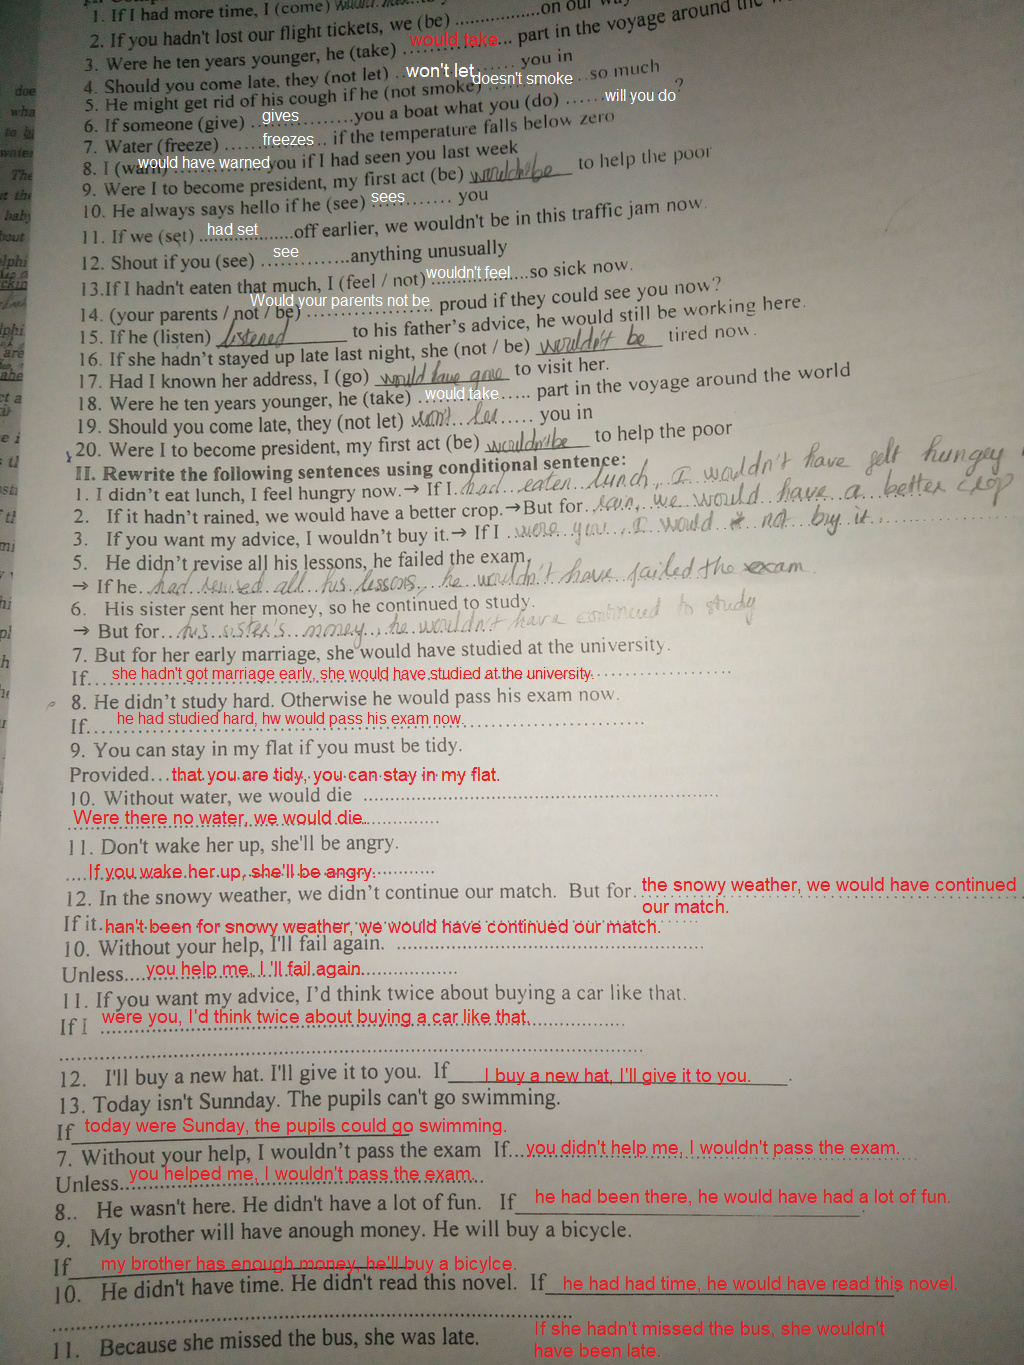 1. If I had more time, I (come)
2. If you hadn't lost our flight tickets, we (be) ............... on our
3. Were he ten years younger, he (take) would take... part in the voyage around the
4. Should you come late, they (not let) .. won't let ...... you in
5. He might get rid of his cough if he (not smoke) doesn't smoke ...so much
6. If someone (give) gives ............you a boat what you (do) ...... will you do ?
7. Water (freeze) ...... freezes .. if the temperature falls below zero
8. I (warn) would have warned you if I had seen you last week
9. Were I to become president, my first act (be) wouldn't be to help the poor
10. He always says hello if he (see) sees ........ you
11. If we (set) had set ......off earlier, we wouldn't be in this traffic jam now.
12. Shout if you (see) see ..............anything unusually
13.If I hadn't eaten that much, I (feel / not) wouldn't feel ....so sick now.
14. (your parents / not / be) Would your parents not be .................. proud if they could see you now?
15. If he (listen) listened to his father's advice, he would still be working here.
16. If she hadn't stayed up late last night, she (not / be) wouldn't be tired now.
17. Had I known her address, I (go) would have gone to visit her.
18. Were he ten years younger, he (take) would take ..... part in the voyage around the world
19. Should you come late, they (not let) won't let ..... you in
20. Were I to become president, my first act (be) wouldn't be to help the poor
II. Rewrite the following sentences using conditional sentence:
1. I didn't eat lunch, I feel hungry now.→ If I had eaten lunch, I wouldn't have felt hungry
2. If it hadn't rained, we would have a better crop.→But for.. rain, we would have a better crop
3. If you want my advice, I wouldn't buy it.→ If I .. were you, I would not buy it.
5. He didn't revise all his lessons, he failed the exam,
→ If he.. had revised all his lessons, he wouldn't have failed the exam
6. His sister sent her money, so he continued to study.
→ But for.. his sister's money, he wouldn't have continued to study
7. But for her early marriage, she would have studied at the university.
If.... she hadn't got marriage early, she would have studied at the university.
8. He didn't study hard. Otherwise he would pass his exam now.
If.... he had studied hard, hw would pass his exam now.
9. You can stay in my flat if you must be tidy.
Provided... that you are tidy, you can stay in my flat.
10. Without water, we would die ..............
Were there no water, we would die.
11. Don't wake her up, she'll be angry.
.... If you wake her up, she'll be angry.
12. In the snowy weather, we didn't continue our match. But for. the snowy weather, we would have continued
our match.
If it. han't been for snowy weather, we would have continued our match.
10. Without your help, I'll fail again. ..............
Unless.... you help me, I 'll fail again.
11. If you want my advice, I'd think twice about buying a car like that.
If I were you, I'd think twice about buying a car like that.
12. I'll buy a new hat. I'll give it to you. If I buy a new hat, I'll give it to you.
13. Today isn't Sunnday. The pupils can't go swimming.
If today were Sunday, the pupils could go swimming.
7. Without your help, I wouldn't pass the exam If... you didn't help me, I wouldn't pass the exam.
Unless.. you helped me, I wouldn't pass the exam.
8.. He wasn't here. He didn't have a lot of fun. If he had been there, he would have had a lot of fun.
9. My brother will have anough money. He will buy a bicycle.
If my brother has enough money, he'll buy a bicylce.
10. He didn't have time. He didn't read this novel. If he had had time, he would have read this novel.
11. Because she missed the bus, she was late. If she hadn't missed the bus, she wouldn't
have been late.